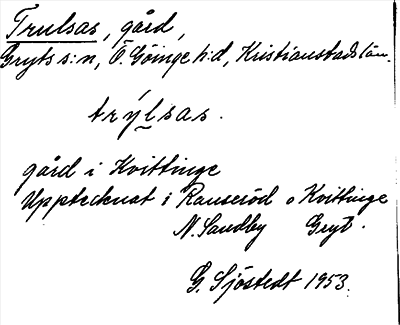 Trulsas, gård,
Gryts s:n, Ö. Göinge h:d, Kristianstads län.
trýlsas.
gård i Kvittinge
Upptecknat i Ranseröd o Kvittinge
N. Sandby Gryt.
G. Sjöstedt 1953.